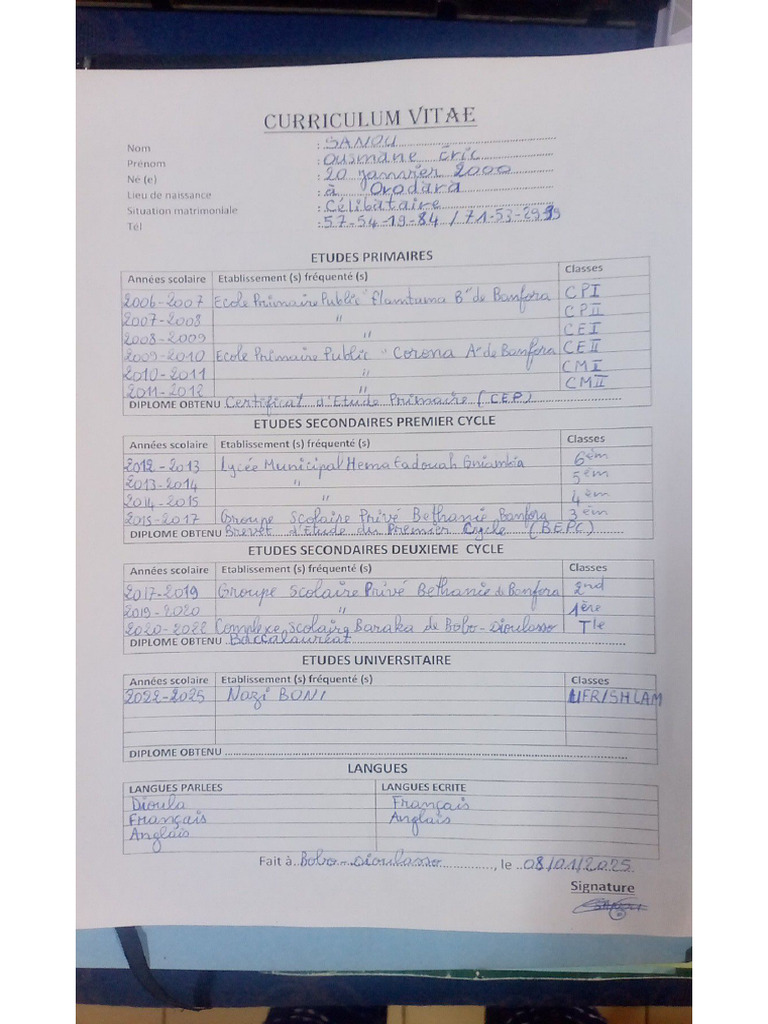 CURRICULUM VITAE
Nom : SANOU
Prénom : Ousmane Éric
Né (e) : 20 janvier 2000
Lieu de naissance : à Orodara
Situation matrimoniale : Célibataire
Tél : 57-54-19-84 / 71-53-29-99
ETUDES PRIMAIRES
Années scolaire Etablissement (s) fréquenté (s) Classes
2006-2007 Ecole Primaire Public "Flamtama B" de Banfora CPI
2007-2008 " CPII
2008-2009 " CEI
2009-2010 Ecole Primaire Public "Corona A" de Banfora CEII
2010-2011 " CMI
2011-2012 " CMII
DIPLOME OBTENU Certificat d'Etude Primaire (CEP)
ETUDES SECONDAIRES PREMIER CYCLE
Années scolaire Etablissement (s) fréquenté (s) Classes
2012-2013 Lycée Municipal Hema Fadouah Gniambia 6èm
2013-2014 " 5èm
2014-2015 " 4èm
2015-2017 Groupe Scolaire Privé Bethanie Banfora 3èm
DIPLOME OBTENU Brevet d'Etude du Premier Cycle (BEPC)
ETUDES SECONDAIRES DEUXIEME CYCLE
Années scolaire Etablissement (s) fréquenté (s) Classes
2017-2019 Groupe Scolaire Privé Bethanie de Banfora 2nd
2019-2020 " 1ère
2020-2022 Complexe Scolaire Baraka de Bobo-Dioulasso Tle
DIPLOME OBTENU Baccalauréat
ETUDES UNIVERSITAIRE
Années scolaire Etablissement (s) fréquenté (s) Classes
2022-2025 Nazi BONI UFR/SHLAM
DIPLOME OBTENU
LANGUES
LANGUES PARLEES LANGUES ECRITE
Dioula Français
Français Anglais
Anglais
Fait à Bobo-Dioulasso, le 08/01/2025
Signature